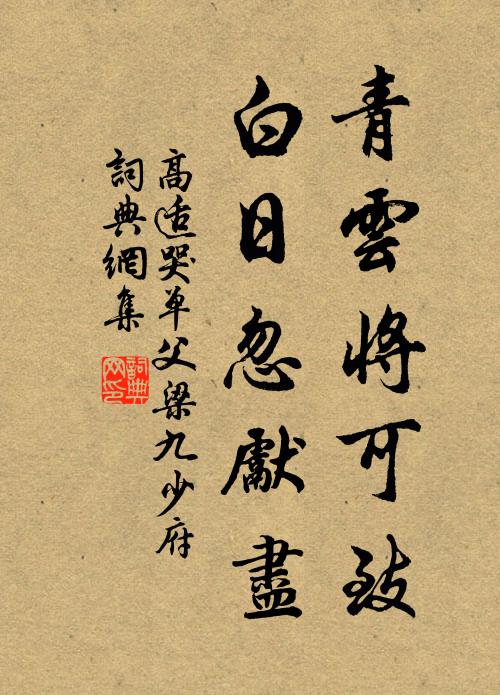 青雲將可致
白日忽獻盡
高適哭單父梁九少府
詞典網集
詞典
网印